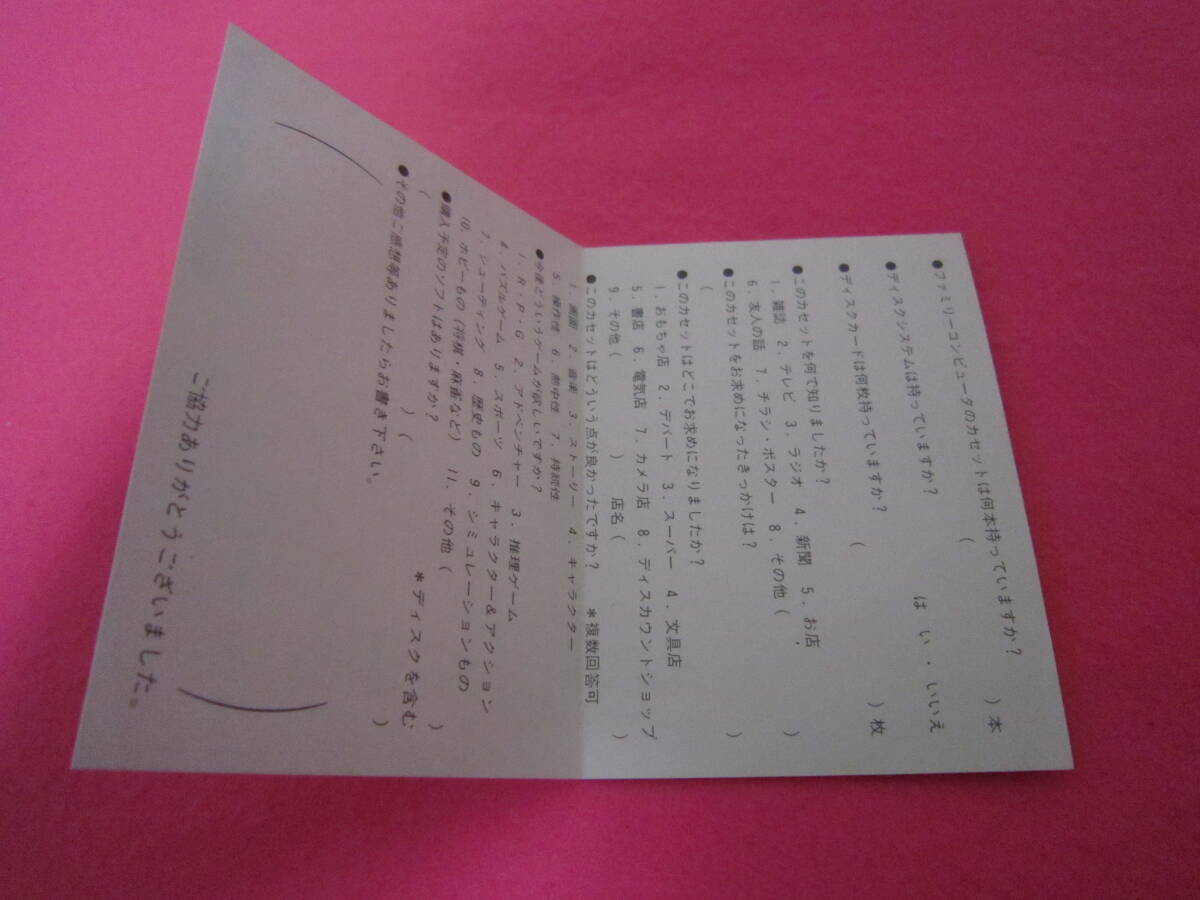 ●ファミリーコンピュータのカセットは何本持っていますか？
（　　　）本
●ディスクシステムは持っていますか？　　　はい・いいえ
●ディスクカードは何枚持っていますか？　（　　　）枚
●このカセットを何で知りましたか？
1．雑誌　2．テレビ　3．ラジオ　4．新聞　5．お店
6．友人の話　7．チラシ・ポスター　8．その他（　　　）
●このカセットをお求めになったきっかけは？
（　　　）
●このカセットはどこでお求めになりましたか？
1．おもちゃ店　2．デパート　3．スーパー　4．文具店
5．書店　6．電気店　7．カメラ店　8．ディスカウントショップ
9．その他（　　　）　店名（　　　）
●このカセットはどういう点が良かったですか？　＊複数回答可
1．画面　2．音楽　3．ストーリー　4．キャラクター
5．操作性　6．熱中性　7．持続性
●今後どういうゲームが欲しいですか？
1．R・P・G　2．アドベンチャー　3．推理ゲーム
4．パズルゲーム　5．スポーツ　6．キャラクター＆アクション
7．シューティング　8．歴史もの　9．シミュレーションもの
10．ホビーもの（将棋・麻雀など）　11．その他（　　　）
●購入予定のソフトはありますか？　　　＊ディスクを含む
（　　　）（　　　）
●その他ご感想等ありましたらお書き下さい。
（　　　）
ご協力ありがとうございました。